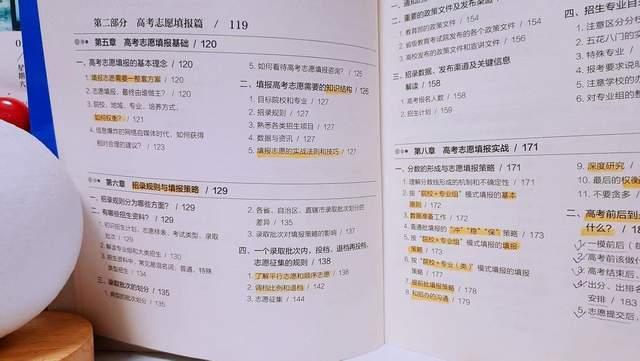 第二部分 高考志愿填报篇 / 119
第五章 高考志愿填报基础 / 120
一、高考志愿填报的基本理念 / 120
1. 填报志愿需要一整套方案 / 120
2. 志愿填报，最终由谁做主？ / 120
3. 院校、地域、专业、培养方式，
如何权衡？ / 121
4. 信息爆炸的网络自媒体时代，如何获得
相对合理的建议？ / 123
5. 如何看待高考志愿填报咨询？ / 126
二、填报高考志愿需要的知识结构 / 126
1. 目标院校和专业 / 127
2. 招录规则 / 127
3. 熟悉各类招生项目 / 127
4. 数据与资讯 / 127
5. 填报志愿的实战法则和技巧 / 127
第六章 招录规则与填报策略 / 129
一、招录规则分为哪些方面？ / 129
二、有哪些招生资料？ / 129
1. 初识招生计划、志愿样表、考试类型、录取
批次 / 129
2. 解读专业组和大类招生 / 130
3. 招生资料中，常见易混名词：普通、特殊
类型招生 / 134
三、录取批次的划分 / 135
1. 典型的批次划分 / 135
2. 各省、自治区、直辖市录取批次划分的
差异 / 135
3. 录取批次对填报策略的影响 / 137
四、一个录取批次内，投档、退档再投档、
志愿征集的规则 / 138
1. 了解平行志愿和顺序志愿 / 138
2. 调档比例和退档 / 142
3. 志愿征集 / 144
二、重要的政策文件及发布渠道 / 154
1. 教育部的政策文件 / 154
2. 省级教育考试院发布的各个政策文件 / 154
3. 高校发布的政策文件和宣讲文件 / 156
三、招录数据、发布渠道及关键信息
解读 / 158
1. 高考报名人数 / 158
2. 招生计划 / 159
第八章 高考志愿填报实战 / 171
一、分数的形成与志愿填报策略 / 171
1. 理解分数线形成的机制和不确定性 / 171
2. 按“院校+专业组”模式填报的基本
原则 / 172
3. 数据准备工作 / 172
4. 普通批填报的“冲”“稳”“保”策略 / 173
5. 按“院校+专业组”模式志愿的填报
策略 / 173
6. 按“院校+专业（类）”模式填报的填报
策略 / 177
7. 提前批填报策略 / 178
8. 和招办的沟通 / 179
四、招生专业目
1. 注意区分
2. 五花八门的
3. 特殊专业 /
4. 报考要求说明
5. 注意学校的
6. 对专业组的整
9. 深度研究 /
10. 最后的权衡
11. 不要贪多 /
二、高考前后到
什么？ / 18
1. 一模前后（
2. 高考前该做什
3. 高考结束后，
4. 出分、出排名
安排 / 183
5. 志愿提交后，